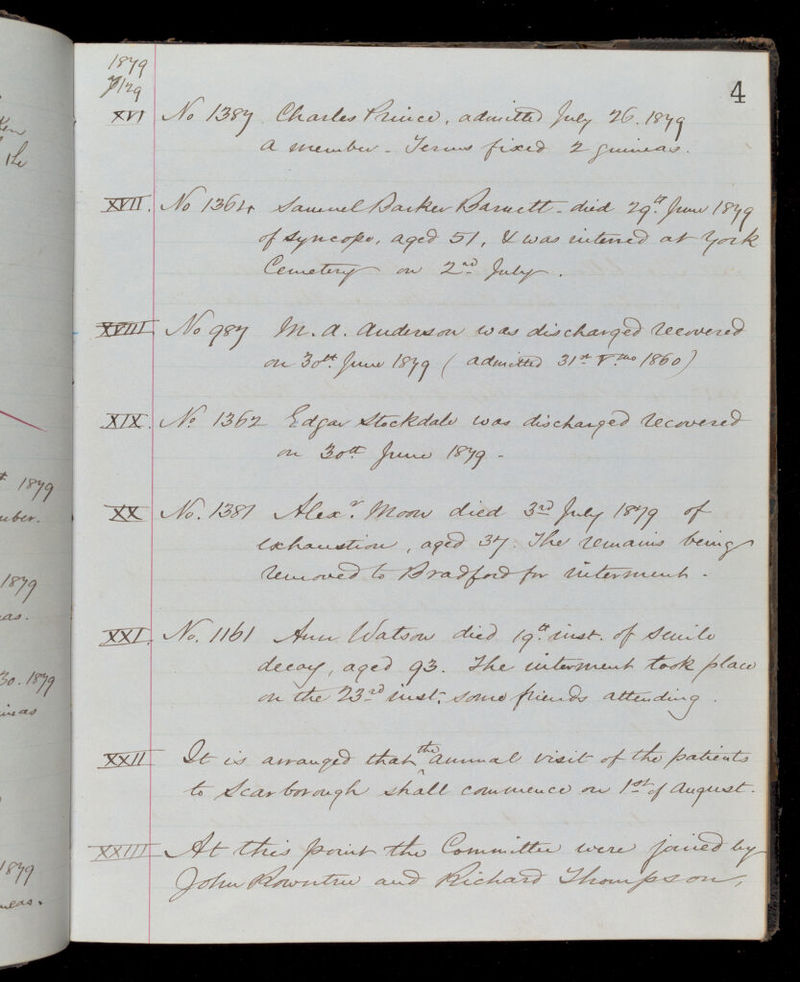 1879
7/29
4
XVI No 1387 Charles Prince, admitted July 26. 1879
a member - Terms fixed 2 guineas.
XVII. No 1364 Samuel Barker Barnett - died 29th June 1879
of syncope, aged 51, & was interred at York
Cemetery on 2nd July.
XVIII No 987 M. A. Anderson was discharged recovered
on 30th June 1879 (admitted 31st V.mo 1860)
XIX. No 1362 Edgar Stockdale was discharged recovered
on 30th June 1879 -
XX No. 1381 Alexr. Moon died 3rd July 1879 of
exhaustion, aged 37. The remains being
removed to Bradford for interment.
XXI. No. 1161 Ann Watson died 19th inst. of senile
decay, aged 93. The interment took place
on the 23rd inst., some friends attending.
XXII It is arranged that the annual visit of the patients
to Scarborough shall commence on 1st of August.
XXIII At this point the Committee were joined by
John Rowntree and Richard Thompson,
1879
1879
30. 1879
1879